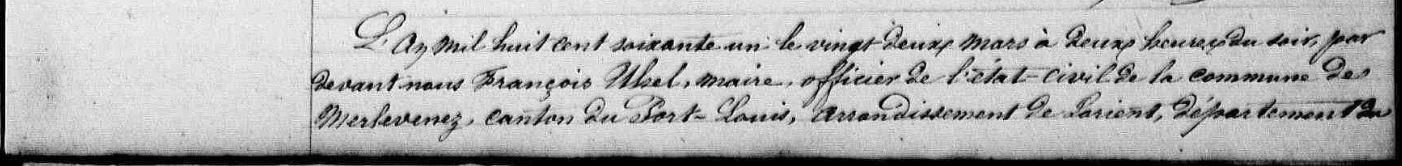 L'an mil huit cent soixante un le vingt deux mars à deux heures du soir, par
devant nous François Uhel, maire, officier de l'état-civil de la commune de
Merlevenez, canton du Port-Louis, arrondissement de Lorient, département du